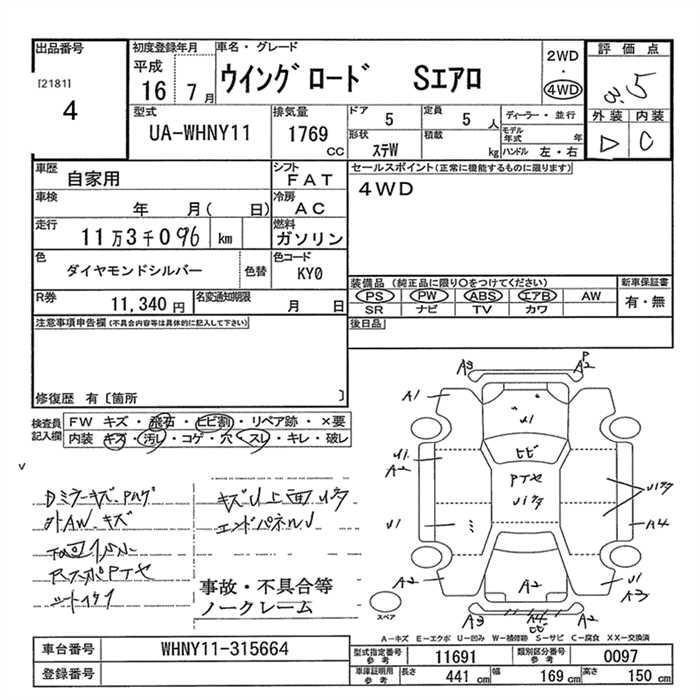 出品番号
[2181]
4
初度登録年月
平成
16 7 月
車名・グレード
ウイングロード Sエアロ
2WD
・
4WD
評価点
3.5
外装 内装
D C
型式
UA-WHNY11
排気量
1769
CC
ドア
5
定員
5 人
ディーラー・並行
形状
ステW
積載
kg
モデル
年式
年
ハンドル 左・右
車歴
自家用
シフト
FAT
セールスポイント(正常に機能するものに限ります)
4WD
車検
年 月( 日)
冷房
AC
走行
11万3千096 km
燃料
ガソリン
色
ダイヤモンドシルバー
色替
色コード
KY0
装備品 (純正品に限り○をつけてください)
PS PW ABS エアB AW
SR ナビ TV カワ
新車保証書
有・無
R券
11,340 円
名変通知期限
月 日
後日品
注意事項申告欄(不具合内容等は具体的に記入して下さい)
修復歴 有〔箇所 〕
検査員
記入欄
FW キズ・飛石・ヒビ割・リペア跡・×要
内装 キズ・汚レ・コゲ・穴・スレ・キレ・破レ
A3
P
A2
A1
U1
ヒビ
U1
A2
PTヤ
U1
A4
A2
A2
U1
A3
A3
A4
ヒビ
A2
スペア
Dミラーキズ、Pハゲ
外AW、キズ
エンドパネルU
事故・不具合等
ノークレーム
A−キズ E−エクボ U−凹み W−補修跡 S−サビ C−腐食 XX−交換済
車台番号
WHNY11-315664
登録番号
型式指定番号
参考
11691
類別区分番号
参考
0097
車庫証明用
参考
長さ
441 cm
幅
169 cm
高さ
150 cm